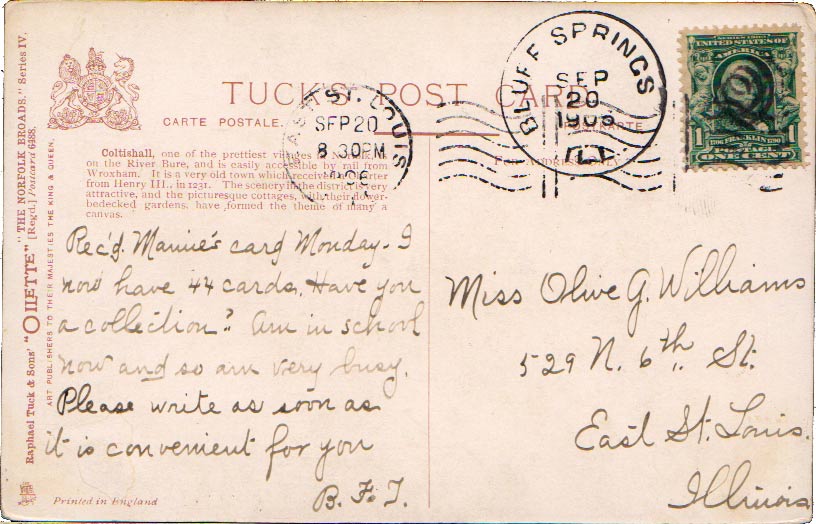 TUCK'S POST CARD
CARTE POSTALE.
POSTKARTE
FOR ADDRESS ONLY
Coltishall, one of the prettiest villages in Norfolk, is
on the River Bure, and is easily accessible by rail from
Wroxham. It is a very old town which received its charter
from Henry III., in 1231. The scenery in the district is very
attractive, and the picturesque cottages, with their flower-
bedecked gardens, have formed the theme of many a
canvas.
Rec'd. Mamie's card Monday - I
now have 44 cards. Have you
a collection? Am in school
now and so am very busy.
Please write as soon as
it is convenient for you
B. F. T.
Miss Olive G. Williams
529 N. 6th. St.
East St. Louis.
Illinois
EAST ST. LOUIS
SEP 20
8 30PM
BLUFF SPRINGS
SEP
20
1906
ILL.
SERIES 1902
UNITED STATES OF
AMERICA
FRANKLIN
1 1
ONE CENT
Raphael Tuck & Sons' "OILETTE" "THE NORFOLK BROADS." Series IV.
[Regd.] Postcard 6488.
ART PUBLISHERS TO THEIR MAJESTIES THE KING & QUEEN.
Printed in England